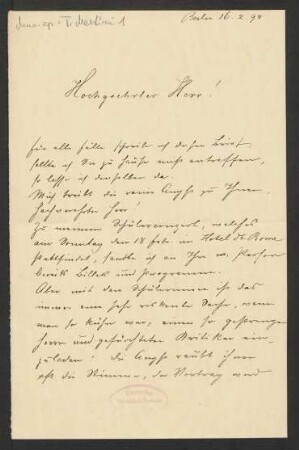 Berlin 16. 2. 98
Hochgeehrter Herr!
Für alle Fälle schreibe ich diesen Brief,
sollte ich Sie zu Hause nicht antreffen,
so lasse ich denselben da.
Mich treibt die reine Angst zu Ihnen,
hochverehrter Herr!
Zu meinem Schülerconcert, welches
am Sonntag den 18 Feb. im Hotel de Rome
stattfindet, sandte ich an Ihre w. Person
bereits Billet und Programm.
Aber mit den Schülerinnen ist das
immer eine sehr riskante Sache, wenn
man so kühn war, einen so gestrengen
Herrn und gefürchteten Kritiker ein-
zuladen. Die Angst raubt ihnen
oft die Stimme, der Vortrag wird